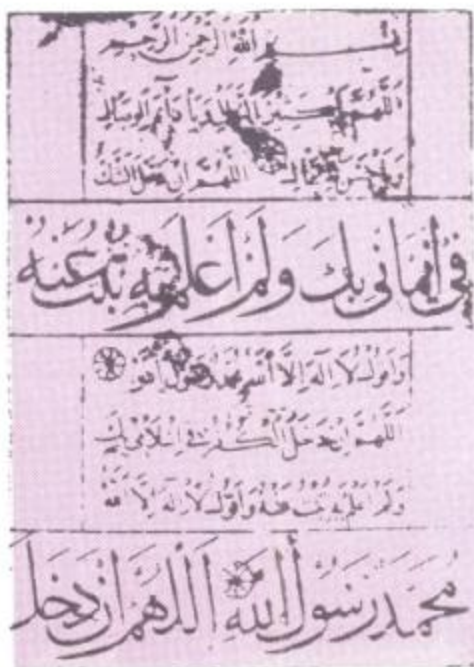 بسم الله الرحمن الرحيم
اللهم يا
اللهم ان دخل الشك
في ايماني بك ولم اعلم به تبت عنه
واقول لا اله الا الله محمد رسول الله
اللهم ان دخل الكفر في اسلامي بك
ولم اعلم به تبت عنه واقول لا اله الا الله
محمد رسول الله اللهم ان دخل